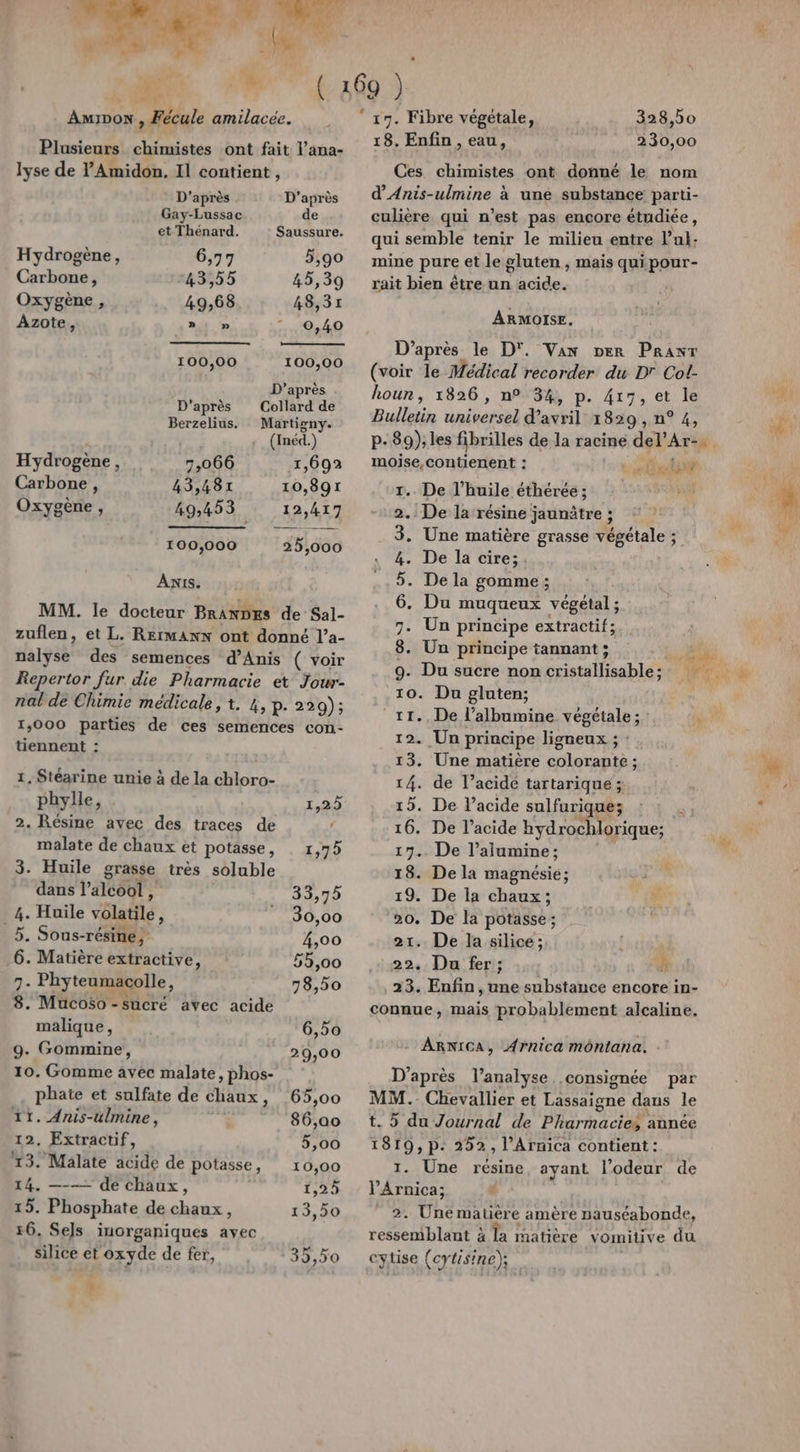 ( 169 )
Amidon, Fécule amilacée.
Plusieurs chimistes ont fait l'ana-
lyse de l'Amidon. Il contient,
D'après D'après
Gay-Lussac de
et Thénard. Saussure.
Hydrogène, 6,77 5,90
Carbone, 43,55 45,39
Oxygène, 49,68 48,31
Azote, » » 0,40
100,00 100,00
D'après
D'après Collard de
Berzelius. Martigny.
(Inéd.)
Hydrogène, 7,066 1,692
Carbone, 43,481 10,891
Oxygène, 49,453 12,417
100,000 25,000
Anis.
MM. le docteur Brandes de Sal-
zuflen, et L. Reimann ont donné l'a-
nalyse des semences d'Anis ( voir
Repertor fur die Pharmacie et Jour-
nal de Chimie médicale, t. 4, p. 229);
1,000 parties de ces semences con-
tiennent :
1. Stéarine unie à de la chloro-
phylle, 1,25
2. Résine avec des traces de
malate de chaux et potasse, 1,75
3. Huile grasse très soluble
dans l'alcool, 33,75
4. Huile volatile, 30,00
5. Sous-résine, 4,00
6. Matière extractive, 55,00
7. Phyteumacolle, 78,50
8. Mucoso-sucré avec acide
malique, 6,50
9. Gommine, 29,00
10. Gomme avec malate, phos-
phate et sulfate de chaux, 65,00
11. Anis-ulmine, 86,00
12. Extractif, 5,00
13. Malate acide de potasse, 10,00
14. —-— de chaux, 1,25
15. Phosphate de chaux, 13,50
16. Sels inorganiques avec
silice et oxyde de fer, 35,50
17. Fibre végétale, 328,50
18. Enfin, eau, 230,00
Ces chimistes ont donné le nom
d'Anis-ulmine à une substance parti-
culière qui n'est pas encore étudiée,
qui semble tenir le milieu entre l'ul-
mine pure et le gluten, mais qui pour-
rait bien être un acide.
Armoise.
D'après le Dr. Van der Prant
(voir le Médical recorder du Dr Col-
houn, 1826, n° 34, p. 417, et le
Bulletin universel d'avril 1829, n° 4,
p. 89), les fibrilles de la racine de l'Ar-
moise contienent :
1. De l'huile éthérée;
2. De la résine jaunâtre ;
3. Une matière grasse végétale ;
4. De la cire;
5. De la gomme ;
6. Du muqueux végétal ;
7. Un principe extractif;
8. Un principe tannant ;
9. Du sucre non cristallisable;
10. Du gluten;
11. De l'albumine végétale ;
12. Un principe ligneux ;
13. Une matière colorante ;
14. de l'acide tartarique ;
15. De l'acide sulfurique;
16. De l'acide hydrochlorique;
17. De l'alumine;
18. De la magnésie;
19. De la chaux ;
20. De la potasse ;
21. De la silice ;
22. Du fer ;
23. Enfin, une substance encore in-
connue, mais probablement alcaline.
Arnica, Arnica montana.
D'après l'analyse consignée par
MM. Chevallier et Lassaigne dans le
t. 5 du Journal de Pharmacie, année
1819, p. 252, l'Arnica contient :
1. Une résine, ayant l'odeur de
l'Arnica;
2. Une matière amère nauséabonde,
ressemblant à la matière vomitive du
cytise (cytisine);